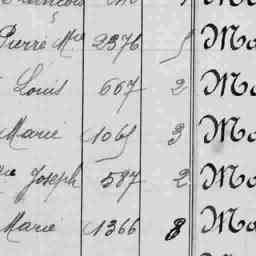 Pierre Mie 2376 5 Ma
Louis 667 2 Ma
Marie 1065 3 Ma
Joseph 587 2 Ma
Marie 1366 8 Ma